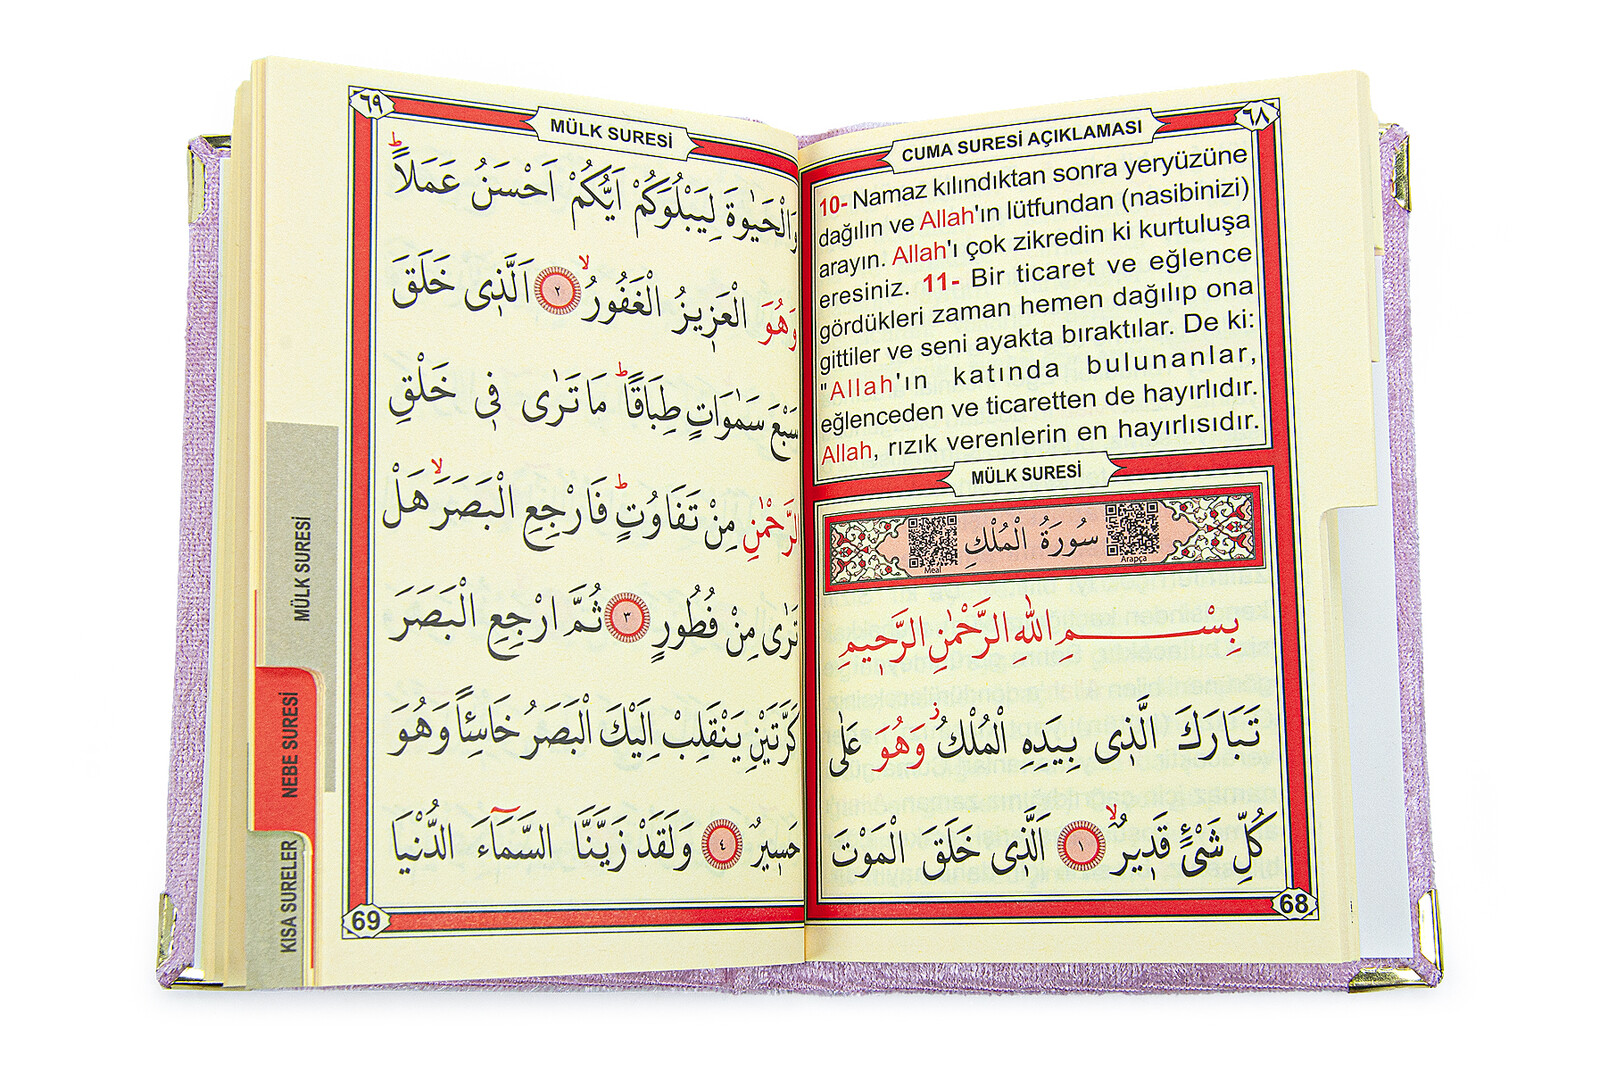 ٦٨
CUMA SURESİ AÇIKLAMASI
10- Namaz kılındıktan sonra yeryüzüne
dağılın ve Allah'ın lütfundan (nasibinizi)
arayın. Allah'ı çok zikredin ki kurtuluşa
eresiniz. 11- Bir ticaret ve eğlence
gördükleri zaman hemen dağılıp ona
gittiler ve seni ayakta bıraktılar. De ki:
"Allah'ın katında bulunanlar,
eğlenceden ve ticaretten de hayırlıdır.
Allah, rızık verenlerin en hayırlısıdır.
MÜLK SURESİ
سُورَةُ الْمُلْكِ
Arapça
Meal
بِسْمِ اللّٰهِ الرَّحْمٰنِ الرَّحٖيمِ
تَبَارَكَ الَّذٖى بِيَدِهِ الْمُلْكُ ز وَهُوَ عَلٰى
كُلِّ شَیْئٍ قَدٖيرٌ ۙ ١ اَلَّذٖى خَلَقَ الْمَوْتَ
68
٦٩
MÜLK SURESİ
وَالْحَيٰوةَ لِيَبْلُوَكُمْ اَيُّكُمْ اَحْسَنُ عَمَلاًؕ
وَهُوَ الْعَزٖيزُ الْغَفُورُ ۙ ٢ اَلَّذٖى خَلَقَ
سَبْعَ سَمٰوَاتٍ طِبَاقًاؕ مَا تَرٰى فٖى خَلْقِ
الرَّحْمٰنِ مِنْ تَفَاوُتٍؕ فَارْجِعِ الْبَصَرَۙ هَلْ
تَرٰى مِنْ فُطُورٍ ٣ ثُمَّ ارْجِعِ الْبَصَرَ
كَرَّتَيْنِ يَنْقَلِبْ اِلَيْكَ الْبَصَرُ خَاسِئًا وَهُوَ
حَسٖيرٌ ٤ وَلَقَدْ زَيَّنَّا السَّمَٓاءَ الدُّنْيَا
69
MÜLK SURESİ
NEBE SURESİ
KISA SURELER